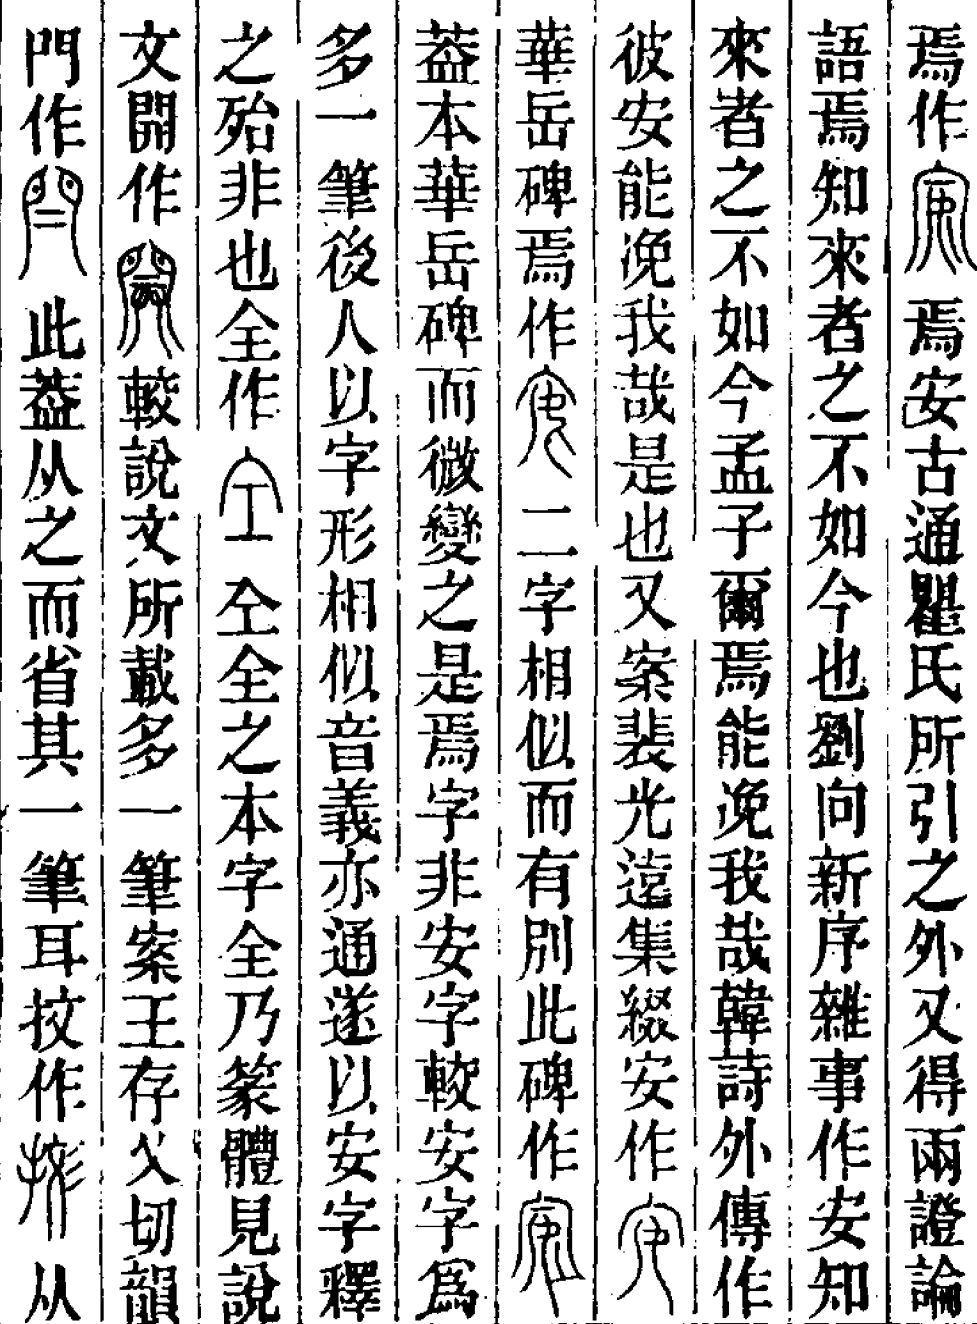 焉作焉安古通瞿氏所引之外又得兩證論
語焉知來者之不如今也劉向新序雜事作安知
來者之不如今孟子爾焉能浼我哉韓詩外傳作
彼安能浼我哉是也又案裴光遠集綴安作
華岳碑焉作二字相似而有別此碑作
葢本華岳碑而微變之是焉字非安字較安字爲
多一筆後人以字形相似音義亦通遂以安字釋
之殆非也全作仝全之本字全乃篆體見說
文開作較說文所載多一筆案王存乂切韻
門作此葢从之而省其一筆耳㧉作从